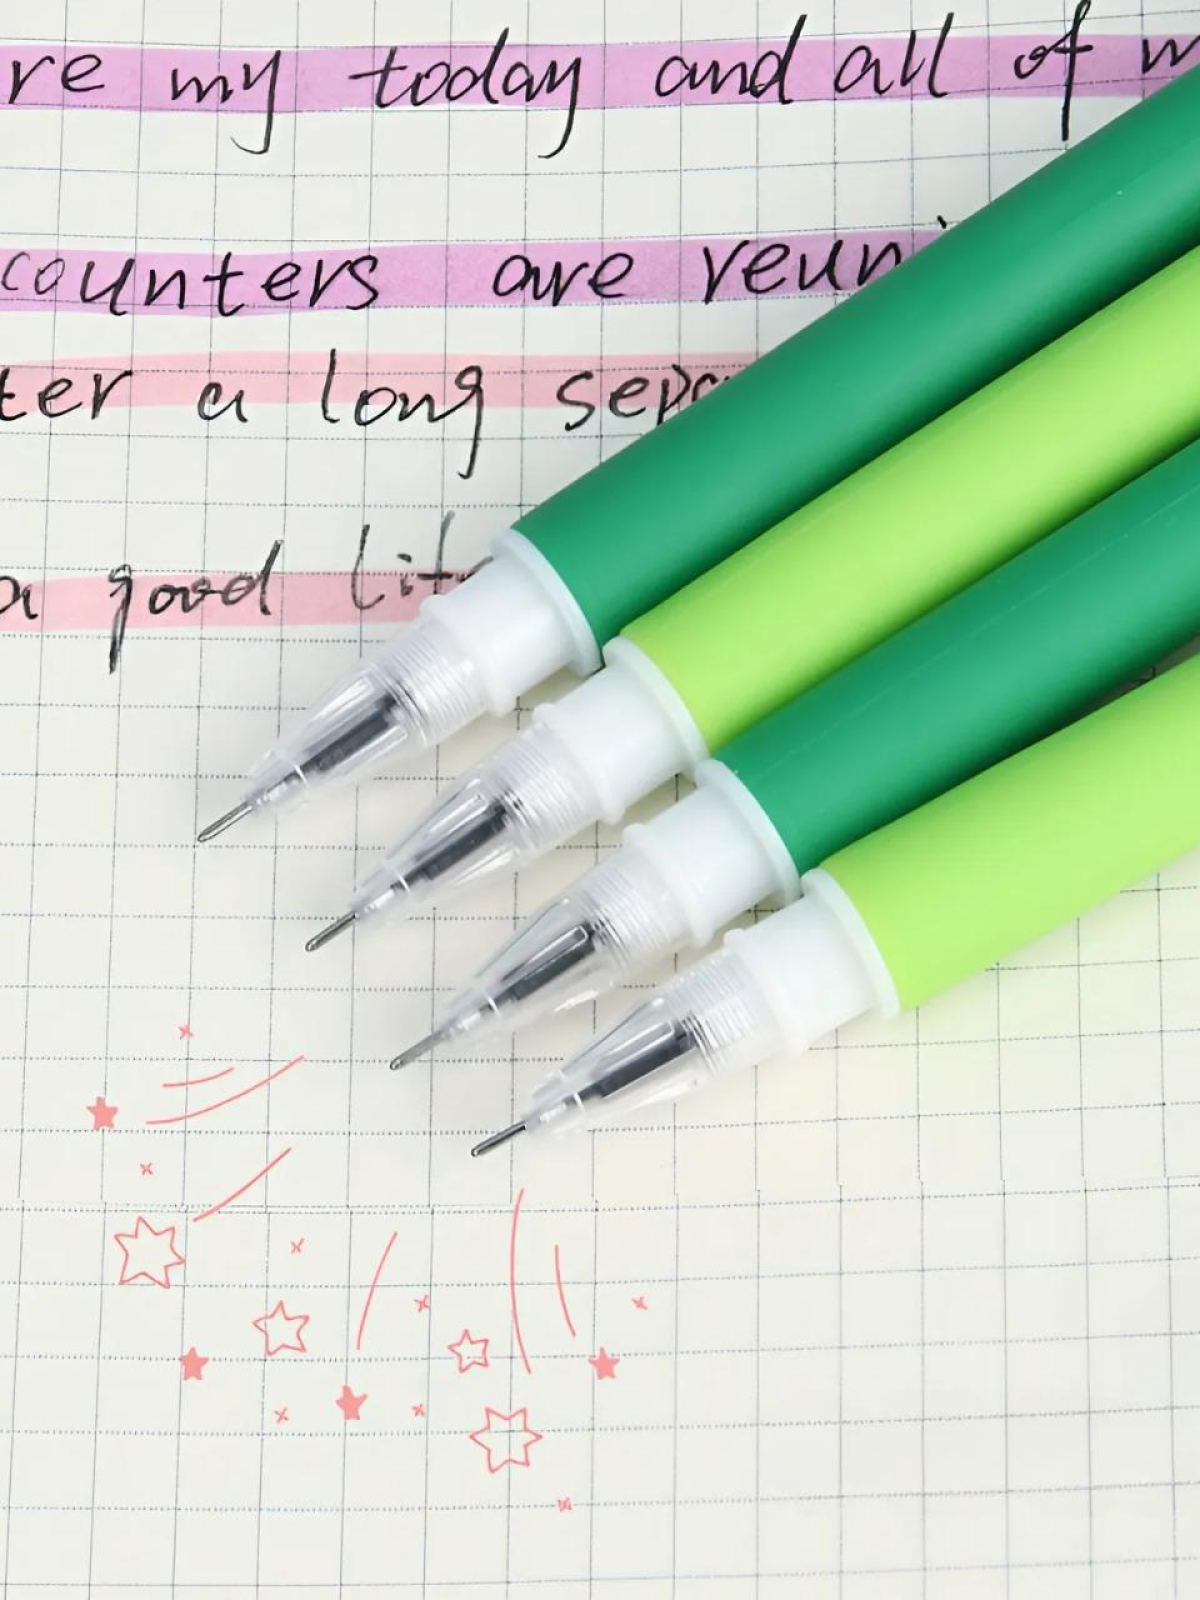 re my today and all of m
counters are reuni
ter a long sepa
a good life